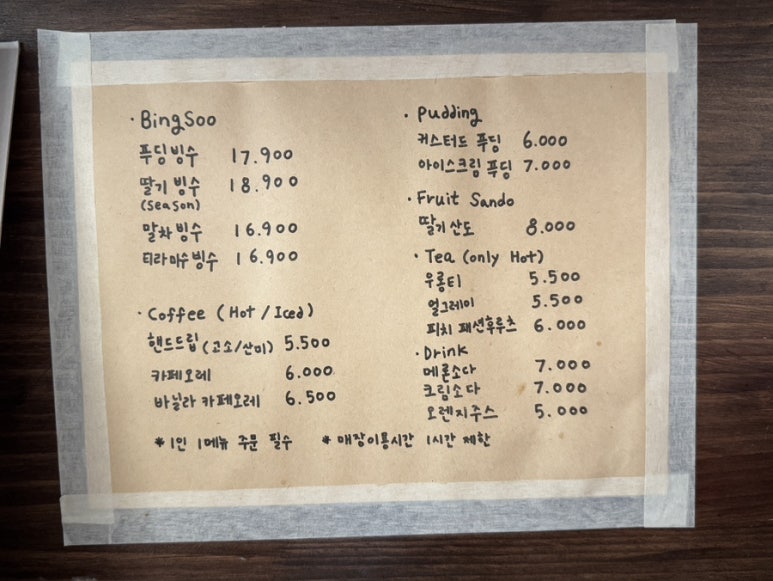 · BingSoo
푸딩빙수 17.900
딸기 빙수 18.900
(Season)
말차빙수 16.900
티라미수빙수 16.900
· Coffee (Hot / Iced)
핸드드립 (고소/산미) 5.500
카페오레 6.000
바닐라 카페오레 6.500
· Pudding
커스터드 푸딩 6.000
아이스크림 푸딩 7.000
· Fruit Sando
딸기산도 8.000
· Tea (only Hot)
우롱티 5.500
얼그레이 5.500
피치 패션후루츠 6.000
· Drink
메론소다 7.000
크림소다 7.000
오렌지주스 5.000
* 1인 1메뉴 주문 필수 * 매장이용시간 1시간 제한